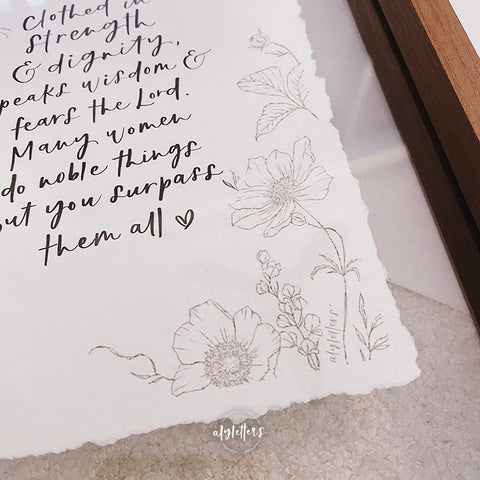 Clothed in
Strength
& dignity,
speaks wisdom &
fears the Lord.
Many women
do noble things
but you surpass
them all ♡
alyletters
alyletters